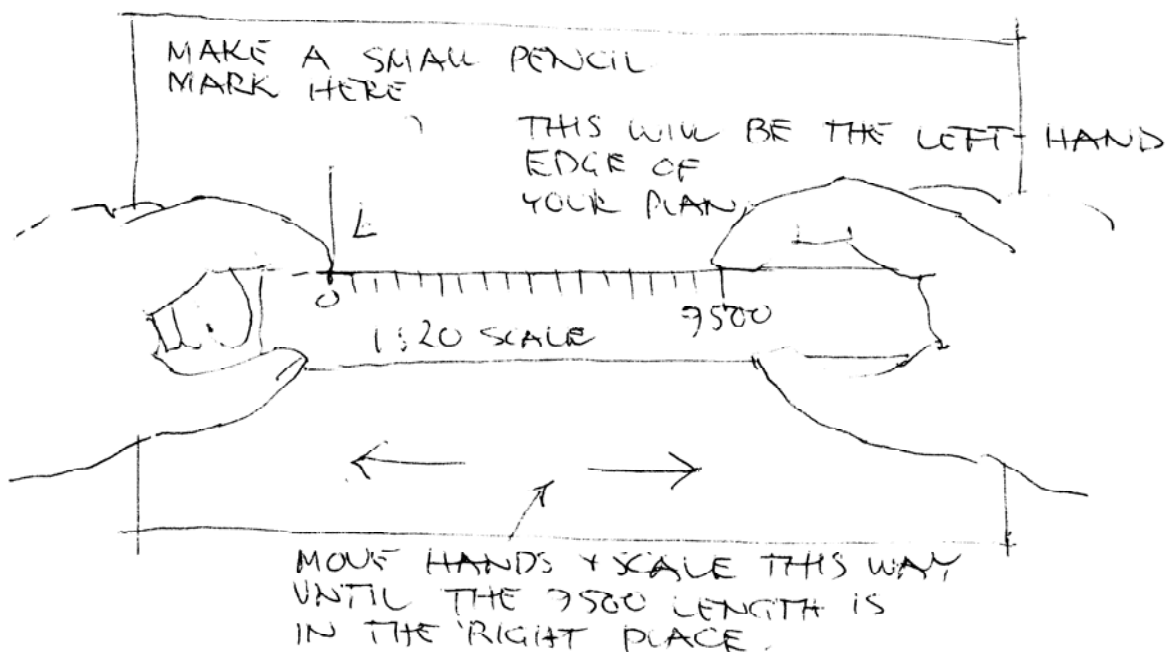 MAKE A SMALL PENCIL
MARK HERE
THIS WILL BE THE LEFT-HAND
EDGE OF
YOUR PLAN
L
0
7500
1:20 SCALE
MOVE HANDS + SCALE THIS WAY
UNTIL THE 7500 LENGTH IS
IN THE RIGHT PLACE.